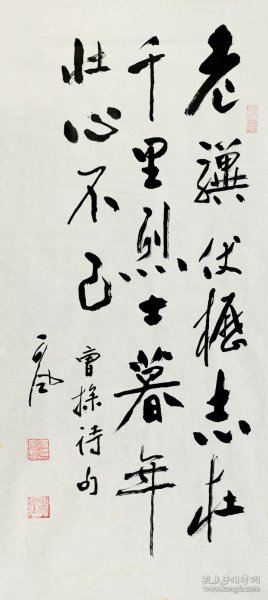 老驥伏櫪志在
千里烈士暮年
壮心不已
曹操诗句
孔夫子旧书网